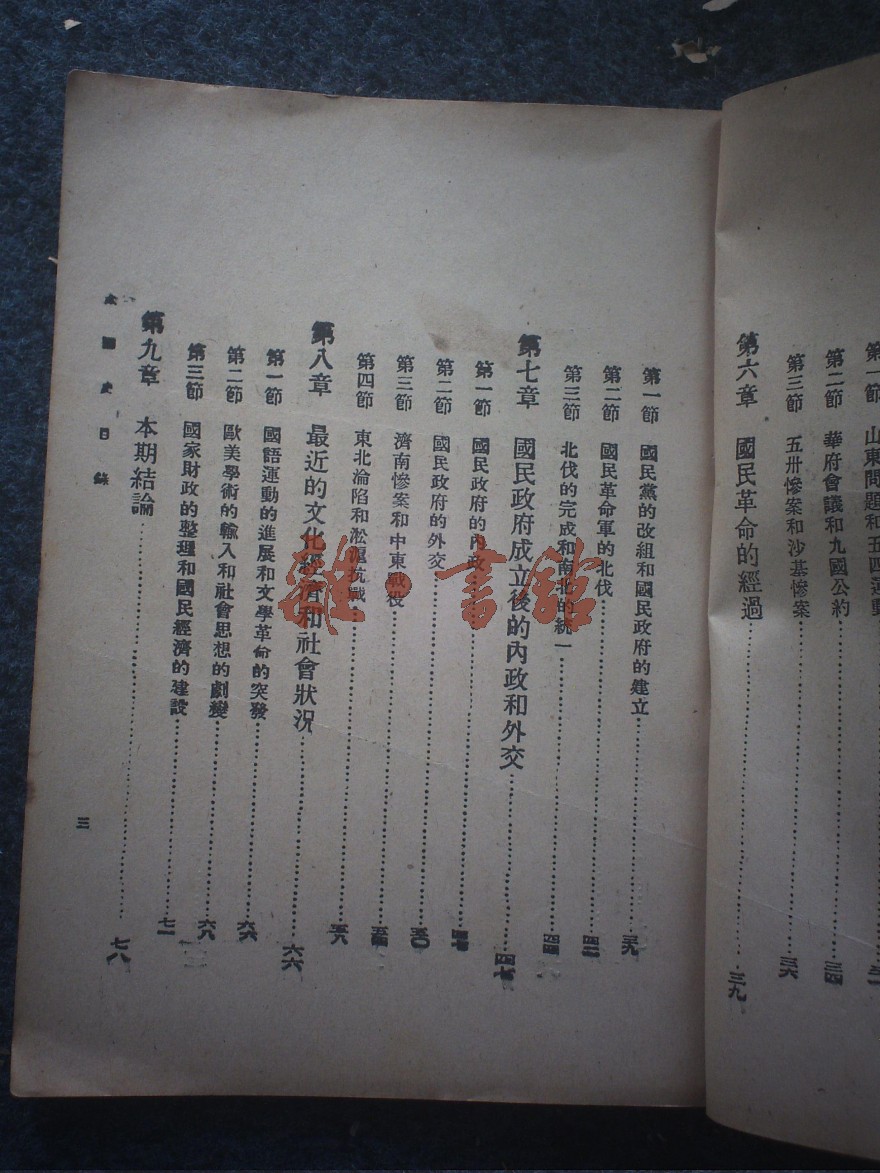 第一節 山東問題和五四運動
第二節 華府會議和九國公約……三四
第三節 五卅慘案和沙基慘案……三六
第六章 國民革命的經過……三九
第一節 國民黨的改組和國民政府的建立……三九
第二節 國民革命軍的北伐……四二
第三節 北伐的完成和南北的統一……四四
第七章 國民政府成立後的內政和外交……四七
第一節 國民政府的內政……四七
第二節 國民政府的外交……五〇
第三節 濟南慘案和中東戰役……五四
第四節 東北淪陷和淞滬抗戰……五六
第八章 最近的文化經濟和社會狀況……六六
第一節 國語運動的進展和文學革命的突發……六六
第二節 歐美學術的輸入和社會思想的劇變……六八
第三節 國家財政的整理和國民經濟的建設……七一
第九章 本期結論……七八
本國史目錄
三
雜·書館